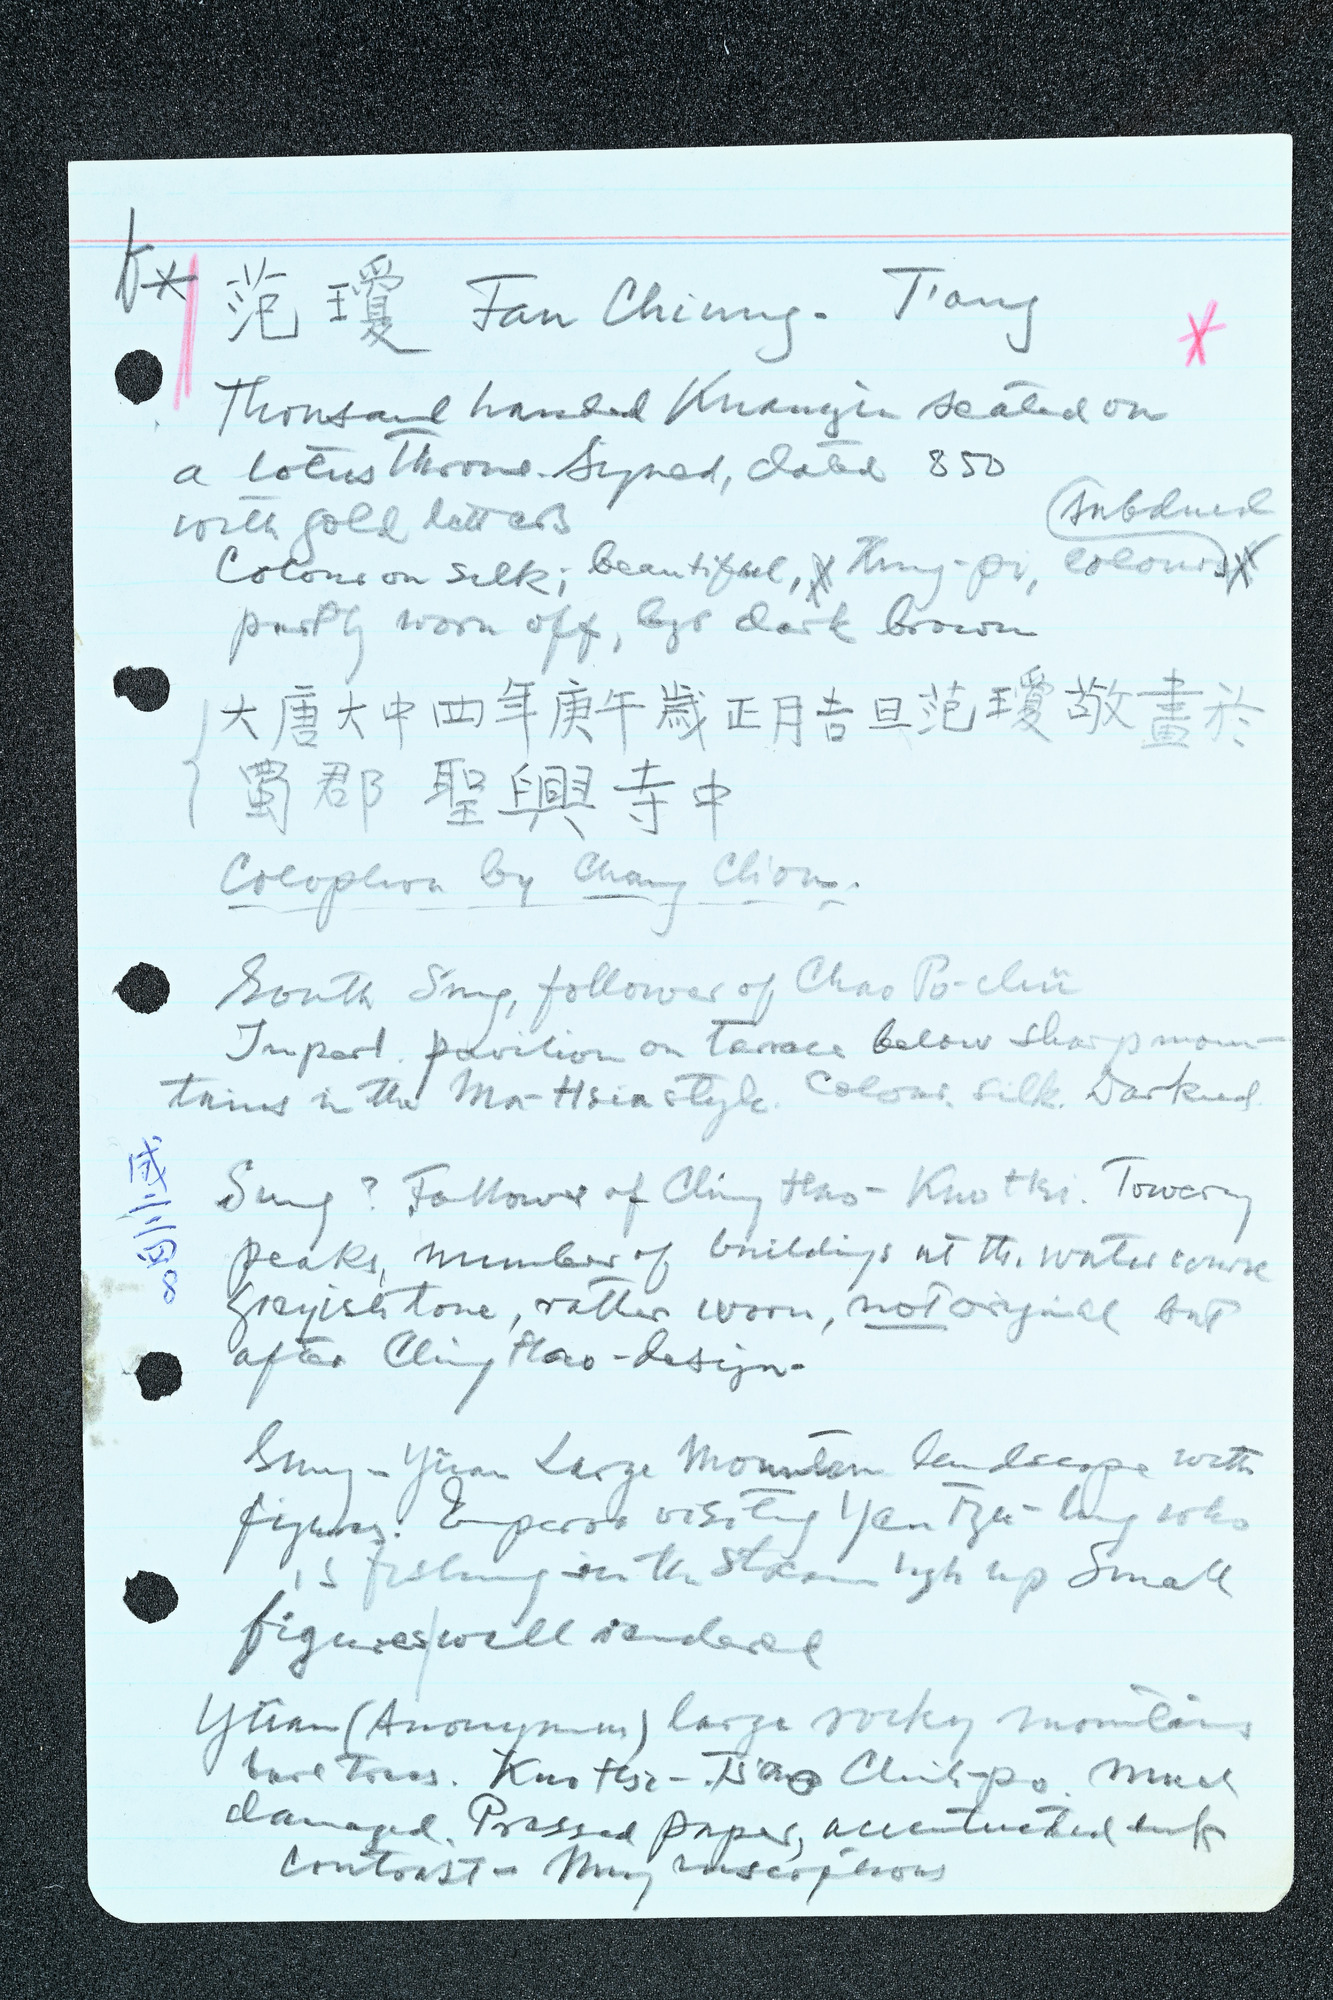 范瓊 Fan Chiung. T'ang
Thousand handed Kuanyin seated on
a lotus throne. Signed, dated 850
with gold letters
subdued
Colour on silk; beautiful, colours
partly worn off, bgr dark brown
大唐大中四年庚午歳正月吉旦范瓊敬畫於
蜀郡 聖興寺中
Colophon by Chang
South Sung, follower of Chao Po-chü
Imperl. pavilion on terrace below sharp moun-
tains in the Ma-Hsia style. Colour. silk. Darkned.
Sung? Follower of Ching Hao - Kuo Hsi. Towering
peaks, number of buildings at the water course
greyish tone, rather worn, not original but
after Ching Hao-design-
Sung-Yüan Large Mountain landscape with
figures. Emperor visiting Yen Tzu-ling who
is fishing in the stream high up Small
figures/well rendered
Yüan (Anonymus) large rocky mountains
bare trees. Kuo Hsi - Ts'ao Chih-po. Much
damaged. Pressed paper, accentuated ink
contrast - Ming inscriptions